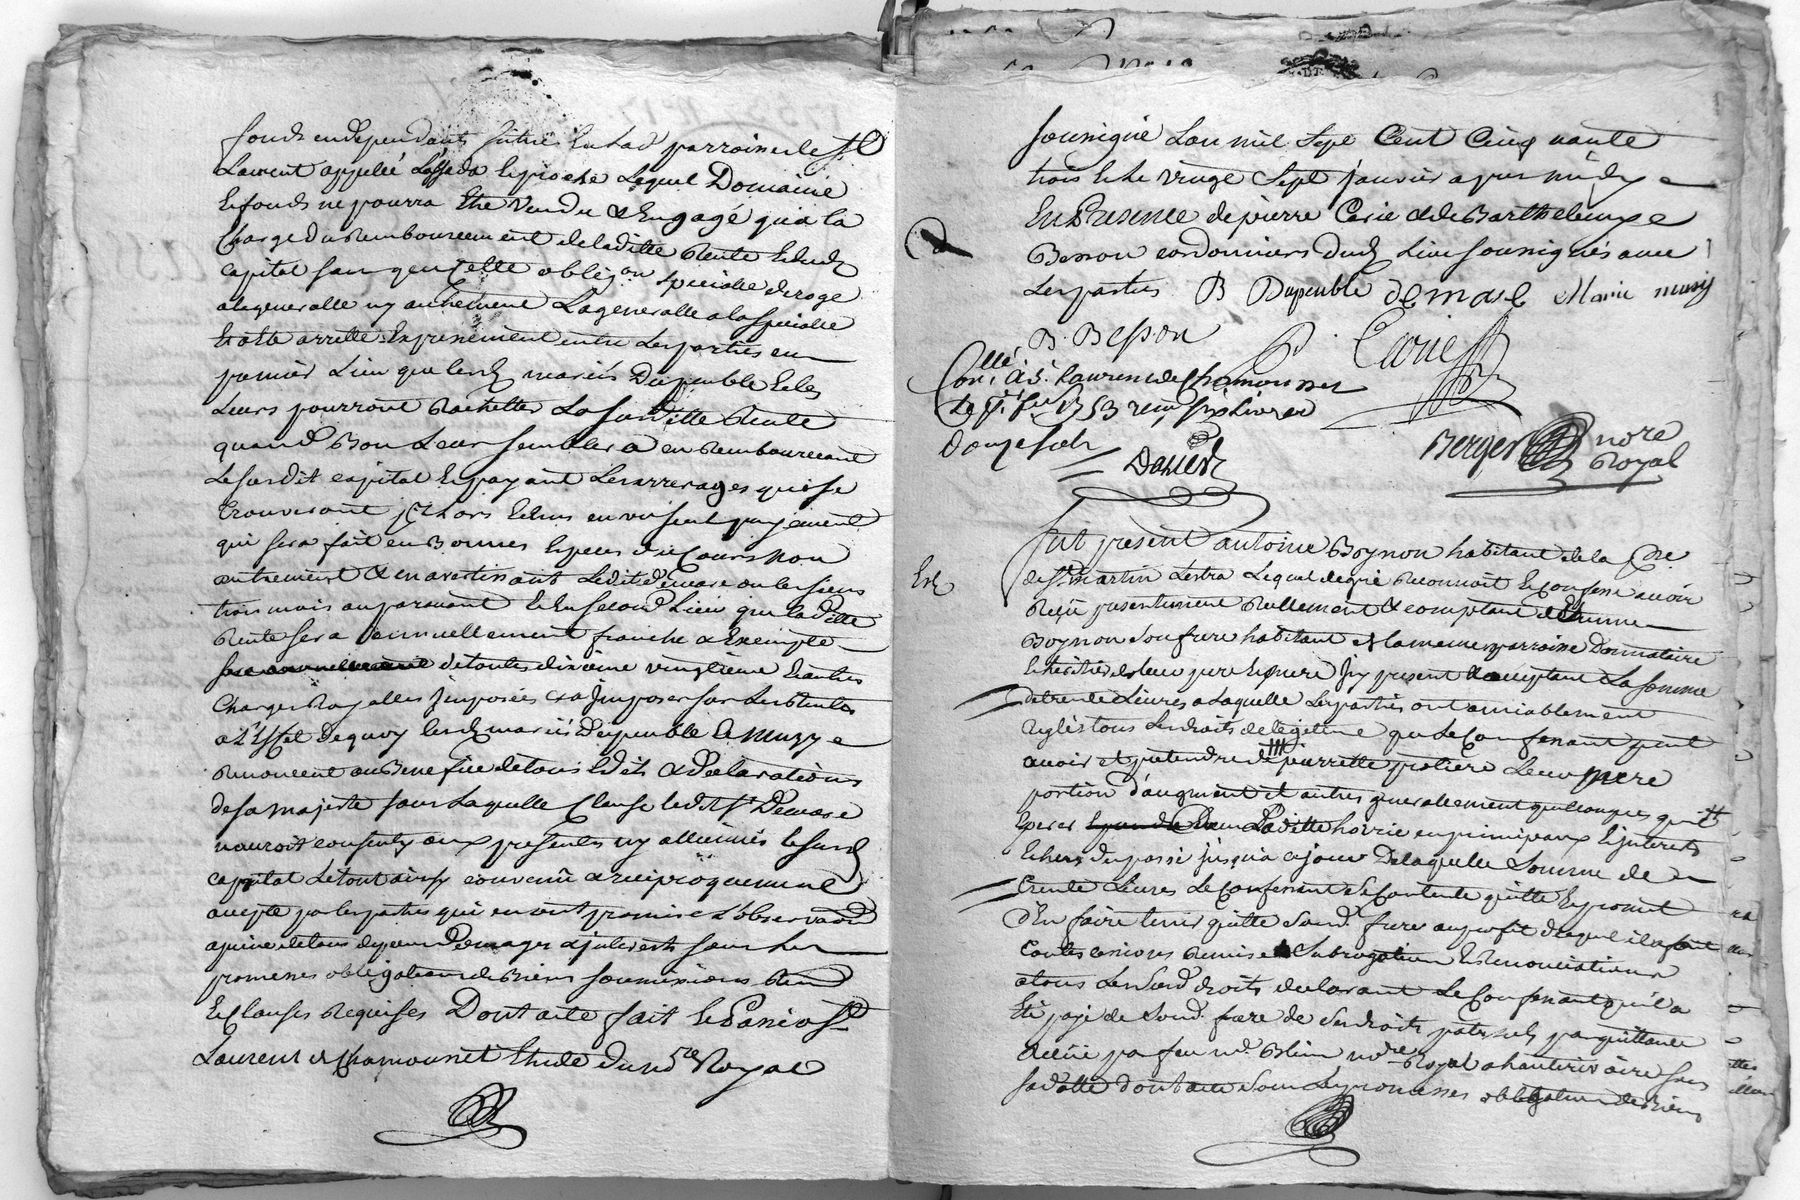 fonds en dependants situés en lad parroisse de St
Laurent appellé Lassada le proche Lequel Domaine
et fonds ne pourra Etre Vendu & Engagé qu'a la
Charge du Remboursement de laditte Rente et dud
capital sans que cette oblig.on specialle deroge
a la generalle ny autrement La generalle a la specialle
Et a été arretté Expressement entre Les parties en
premier Lieu que lesd mariés Dupeuble et les
Leurs pourront Rachetter La susditte Rente
quand Bon Leur semblera en Rembourceant
Le susdit capital Et payant Les arrerages qui se
trouveront  en un seul payement
qui sera fait en Bonnes Especes du Cours non
autrement & en avertissant Ledit demare ou les siens
trois mois auparavant Et En second Lieu que laditte
Rente sera annuellement franche & Exempte
de toutes dixieme vingtieme et autres
Charges Royalles Jmposées & a Jmposer sur Les Rentes
a L'Effet de quoy lesd mariés Dupeuble et Muzy
Renoncent au Benefice de tous Edits & Declarations
de sa majesté sans Laquelle Clause ledit Sr Demare
n'auroit consenty aux presentes ny alliéné le susd
capital Le tout ainsy convenu & reciproquement
accepté par les parties qui en ont promis L'observaon
a peine de tous depens Domages & interests sous Les
promesses obligations de Biens soumissions Ren
Et Clauses Requises Dont acte fait & Passé a St
Laurent de Chamousset Etude du no.re Royal
sousigné L'an mil Sept Cent Cinquante
trois et le vingt Sept janvier apres midy
En Presence de pierre Carie & de Barthelemy
Besson cordonniers dud Lieu sousignés avec
Les parties B Dupeuble demare Marie musy
B. Besson Carie
Con.llé a St. Laurent de Chamousset
Le  1753 reçu six Livres
douze sols
Berger nore
Royal
Fut présent antoine Boynon habitant de la Pse
de St martin Lestra Lequel de gré Reconnoit Et Confesse avoir
Reçu presentement Reellement & comptant d'Etienne
Boynon son frere habitant de la meme parroisse Donnataire
et heritier de leur pere et mere Jcy present & acceptant La somme
de trente Livres a Laquelle Les parties ont amiablement
reglés tous Les droits de legitime que Le Confessant peut
avoir et pretendre de pierrette protiere Leur mere
portion d'augment et autres generallement quelconques qu'il
Esperer  Laditte hoirie en principaux Et jnterests
 du passé jusqu'a ce jour De laquelle Somme de
trente Livres Le Confessant Se Contente quitte Et promet
d'En faire tenir quitte Sond. frere au profit duquel il a fait
toutes cessions Remises Subrogation & Renonciations
a tous Les susd droits declarant Le Confessant qu'il a
Eté payé de Sond. frere de Ses droits paternels par quittance
Recüe par feu me. Blein no.re Royal a hauterivoire sous
sa datte dont acte Sous Les promesses obligation de Biens